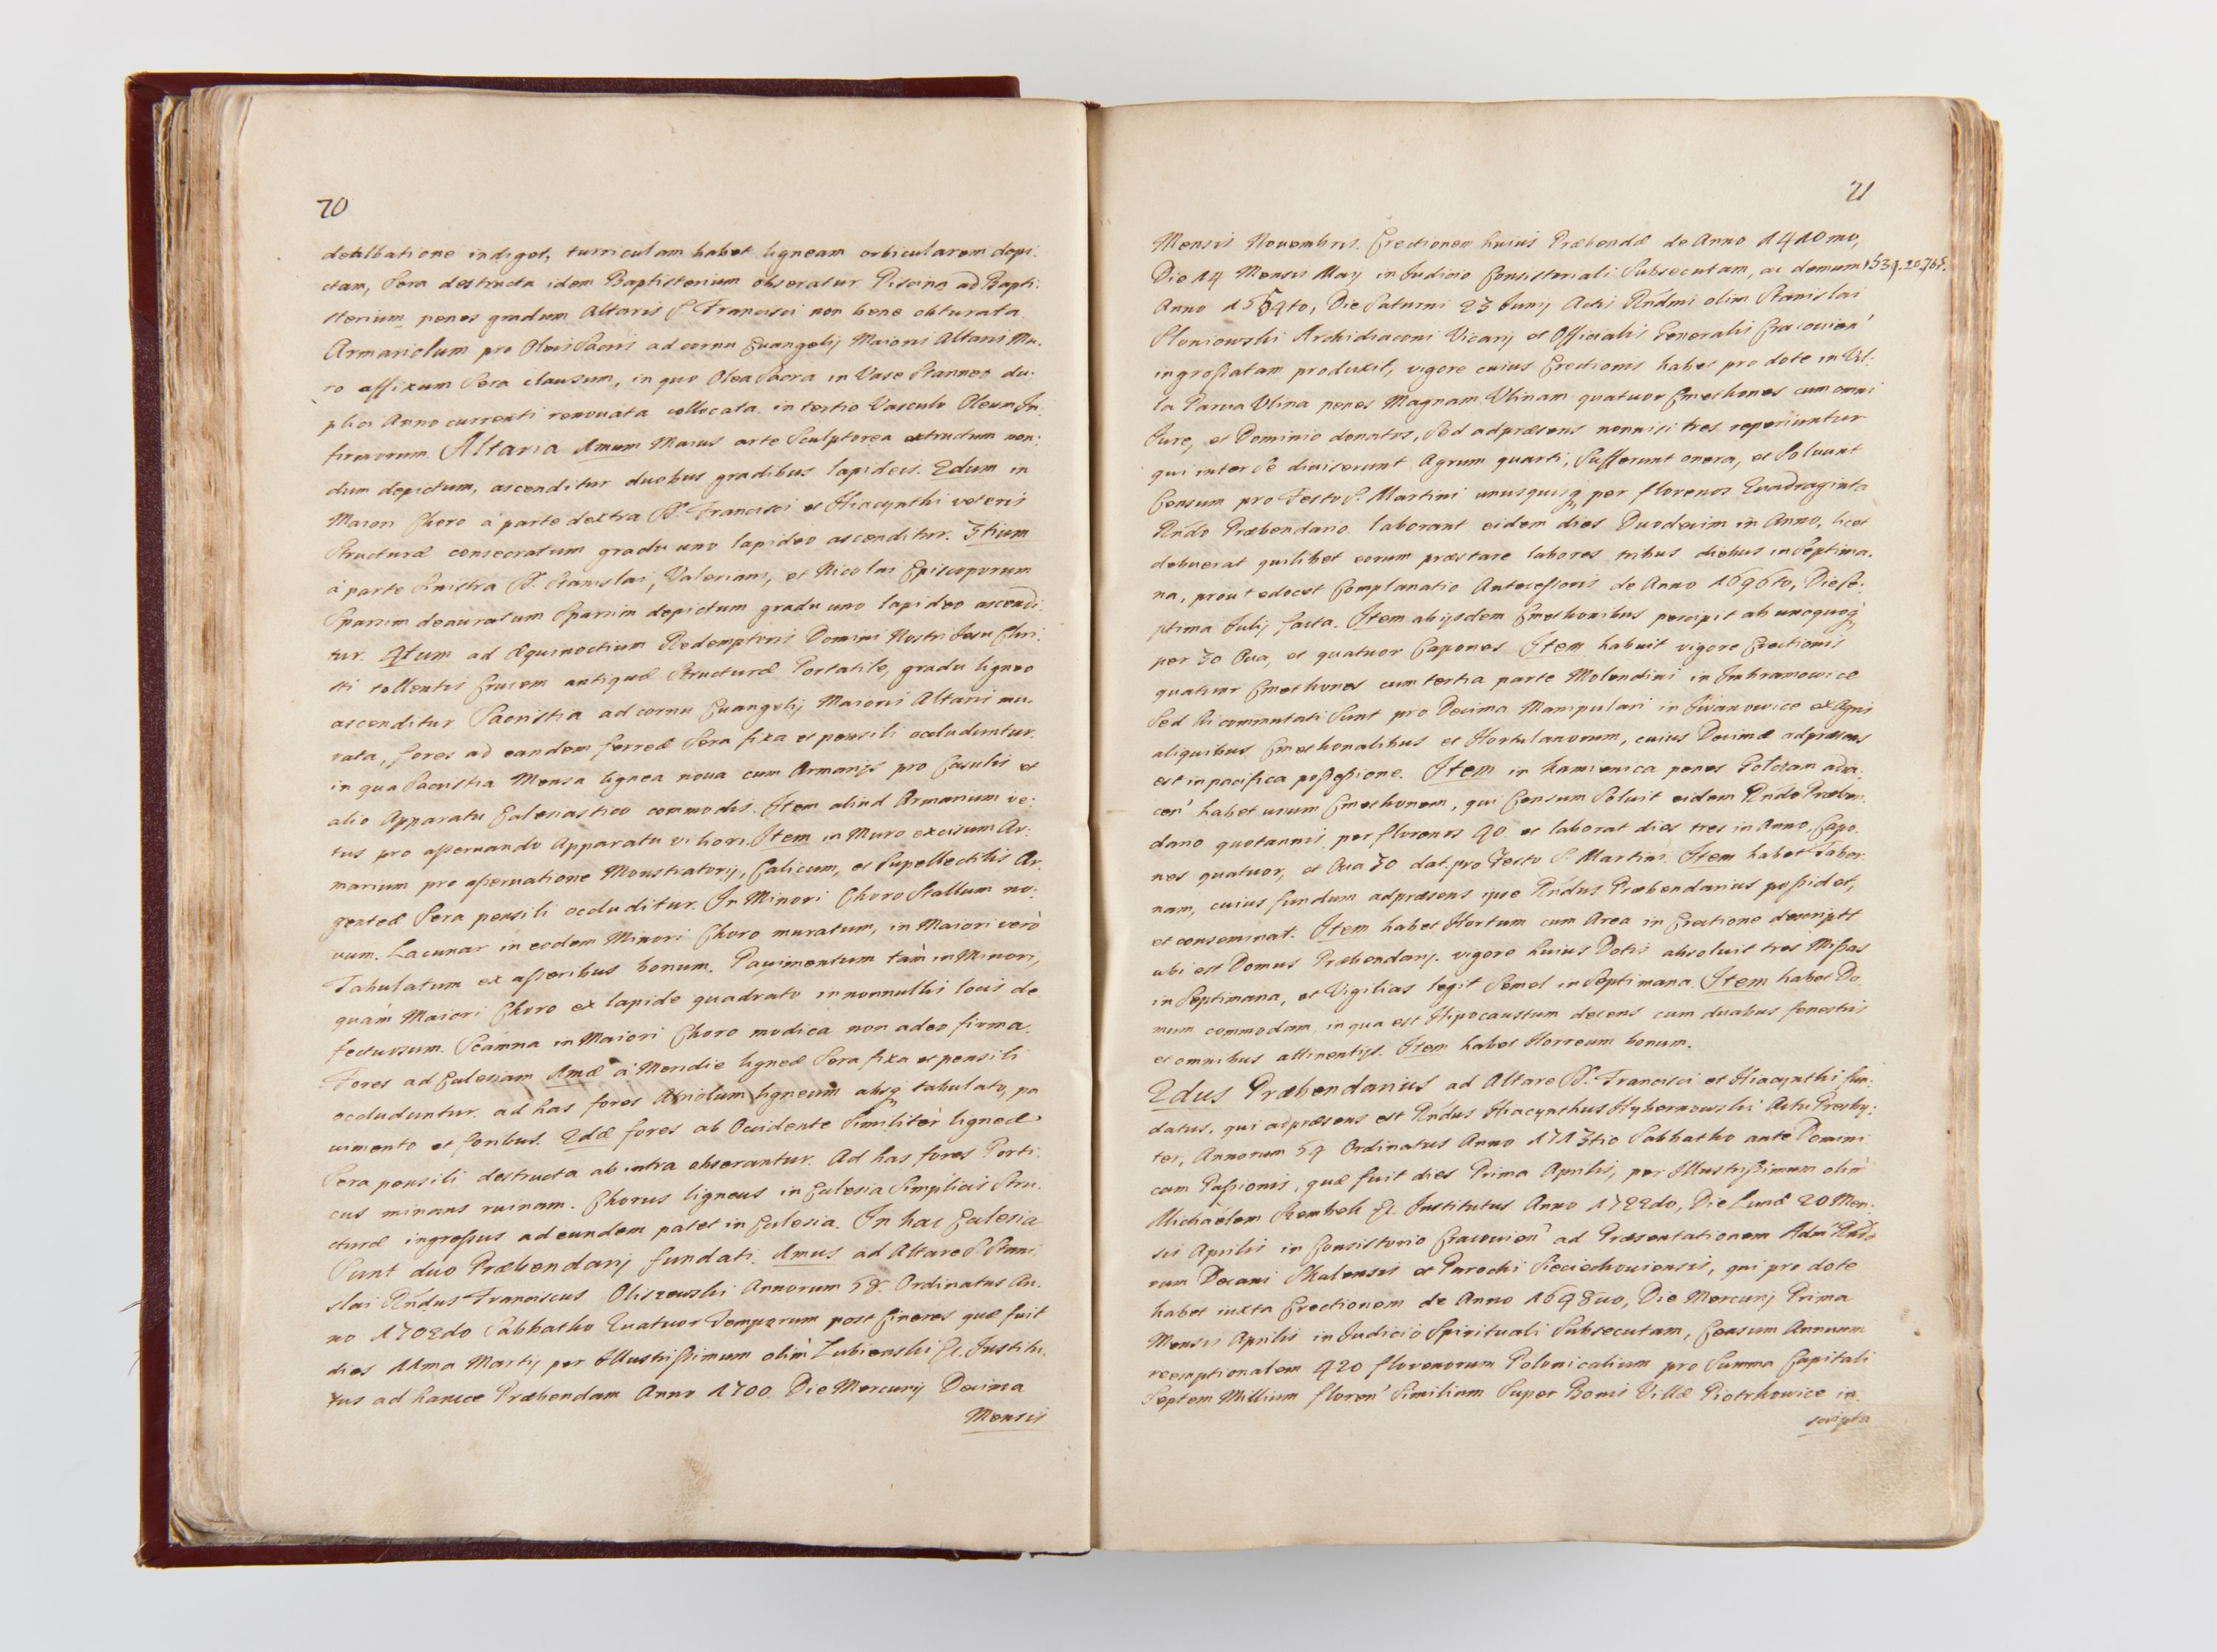 70
dealbatione indiget, turriculam habet ligneam orbicularem depi:
ctam, Sera destructa idem Baptisterium obseratur. Piscina ad Bapti:
sterium penes gradum Altaris S. Francisci non bene obturata.
Armariolum pro Oleis Sacris ad cornu Evangelij Maioris Altaris Mu:
ro affixum Sera clausum, in quo Olea Sacra in Vase Stanneo du:
plici Anno currenti renovata collocata. in tertio Vasculo Oleum In:
firmorum. Altaria 1mum Maius arte Sculptorea extructum non:
dum depictum, ascenditur duobus gradibus lapideis. 2dum in
Maiori Choro à parte dextra SS. Francisci et Hiacynthi veteris
Structuræ consecratum gradu uno lapideo ascenditur. 3tium
à parte Sinistra SS. Stanislai, Valeriani, et Nicolai Episcoporum
Sparsim deauratum Sparsim depictum gradu uno lapideo ascendi:
tur. 4tum ad Æquinoctium Redemptoris Domini Nostri Jesu Chri:
sti tollentis Crucem antiquæ Structuræ Portatile, gradu ligneo
ascenditur. Sacristia ad cornu Evangelij Maioris Altaris mu:
rata, fores ad eandem ferreæ Sera fixa et pensili occluduntur.
in qua Sacristia Mensa lignea nova cum Armarijs pro Casulis et
alio Apparatu Ecclesiastico commodis. Item aliud Armarium ve:
tus pro asservando Apparatu viliori. Item in Muro excisum Ar:
marium pro asservatione Monstratorij, Calicum, et Supellectilis Ar:
genteæ Sera pensili occluditur. In Minori Choro Stallum no:
vum. Lacunar in eodem Minori Choro muratum, in Maiori verò
Tabulatum ex asseribus bonum. Pavimentum tàm in Minori,
quàm Maiori Choro ex lapide quadrato in nonnullis locis de
fectuosum. Scamna in Maiori Choro modica non adeo firma.
Fores ad Ecclesiam 1mæ à Meridie ligneæ Sera fixa et pensili
occluduntur. ad has fores Atriolum ligneum absq tabulato, pa
vimento et foribus. 2dæ fores ab Occidente Similitèr ligneæ
Sera pensili destructa ab intra obserantur. Ad has fores Porti:
cus minans ruinam. Chorus ligneus in Ecclesia Simplicis Stru:
cturæ ingressus ad eundem patet in Ecclesia. In hac Ecclesia
Sunt duo Præbendarij fundati. 1mus ad Altare S. Stani:
slai Rndus Franciscus Olszewski Annorum 58. Ordinatus An:
no 1702do Sabbatho Quatuor Temporum post Cineres quæ fuit
dies 11ma Martij per Illustrissimum olim Łubienski Ec. Institu:
tus ad hancce Præbendam Anno 1700 Die Mercurij Decima
Mensis
71
Mensis Novembris. Erectionem huius Præbendæ de Anno 1410mo,
Die 14 Mensis May in Judicio Consistoriali Subsecutam, ac demum
Anno 1594to, Die Saturni 23 Junij Actis Rndmi olim Stanislai
Słoniowski Archidiaconi Vicarij et Officialis Generalis Cracovien'
ingrossatam produxit, vigore cuius Erectionis habet pro dote in Vil:
la Parva Vlina penes Magnam Vlinam quatuor Cmethones cum omni
Jure, et Dominio donatos, Sed adpræsens nonnisi tres reperiuntur
qui inter Se diviserunt Agrum quarti, Sufferunt onera, et Solvunt
Censum pro Festo S. Martini unusquisq per florenos Quadraginta
Rndo Præbendario. laborant eidem dies Duodecim in Anno, licet
debuerat quilibet eorum præstare labores tribus diebus in Septima:
na, prout edocet Complanatio Antecessoris de Anno 1696to, Die Se:
ptima Julij facta. Item ab ijsdem Cmethonibus percipit ab unoquoq
per 30 Ova, et quatuor Capones. Item habuit vigore Erectionis
quatuor Cmethones cum tertia parte Molendini in Imbramowice
Sed hi commutati Sunt pro Decima Manipulari in Iwanowice ex Agris
aliquibus Cmethonalibus et Hortulanorum, cuius Decimæ adpræsens
est in pacifica possessione. Item in Kamienica penes Gołczam adia:
cen' habet unum Cmethonem, qui Censum Solvit eidem Rndo Præben:
dario quotannis per florenos 40 et laborat dies tres in Anno, Capo:
nes quatuor, et Ova 30 dat pro Festo S. Martini. Item habet Taber:
nam, cuius fundum adpræsens ipse Rndus Præbendarius possidet,
et conseminat. Item habet Hortum cum Area in Erectione descripta
ubi est Domus Præbendarij. vigore huius Dotis absolvit tres Missas
in Septimana, et Vigilias legit Semel in Septimana. Item habet Do:
mum commodam, in qua est Hipocaustum decens cum duabus fenestris
et omnibus attinentijs. Item habet Horreum bonum.
2dus Præbendarius ad Altare SS. Francisci et Hiacynthi fun:
datus, qui adpræsens est Rndus Hiacynthus Actu Presby:
ter, Annorum 54 Ordinatus Anno 1713tio Sabbatho ante Domini
cam Passionis, quæ fuit dies Prima Aprilis, per Illustrissimum olim
Michaëlem Szembek Ec. Institutus Anno 1722do, Die Lunæ 20 Men:
sis Aprilis in Consistorio Cracovien' ad Præsentationem Adm Rndo
rum Decani Skalensis et Parochi Sieciechoviensis, qui pro dote
habet iuxta Erectionem de Anno 1698vo, Die Mercurij Prima
Mensis Aprilis in Judicio Spirituali Subsecutam, Censum Annuum
reemptionalem 420 florenorum Polonicalium pro Summa Capitali
Septem Millium floren' Similium Super Bonis Villæ Piotrkowice in:
scripta